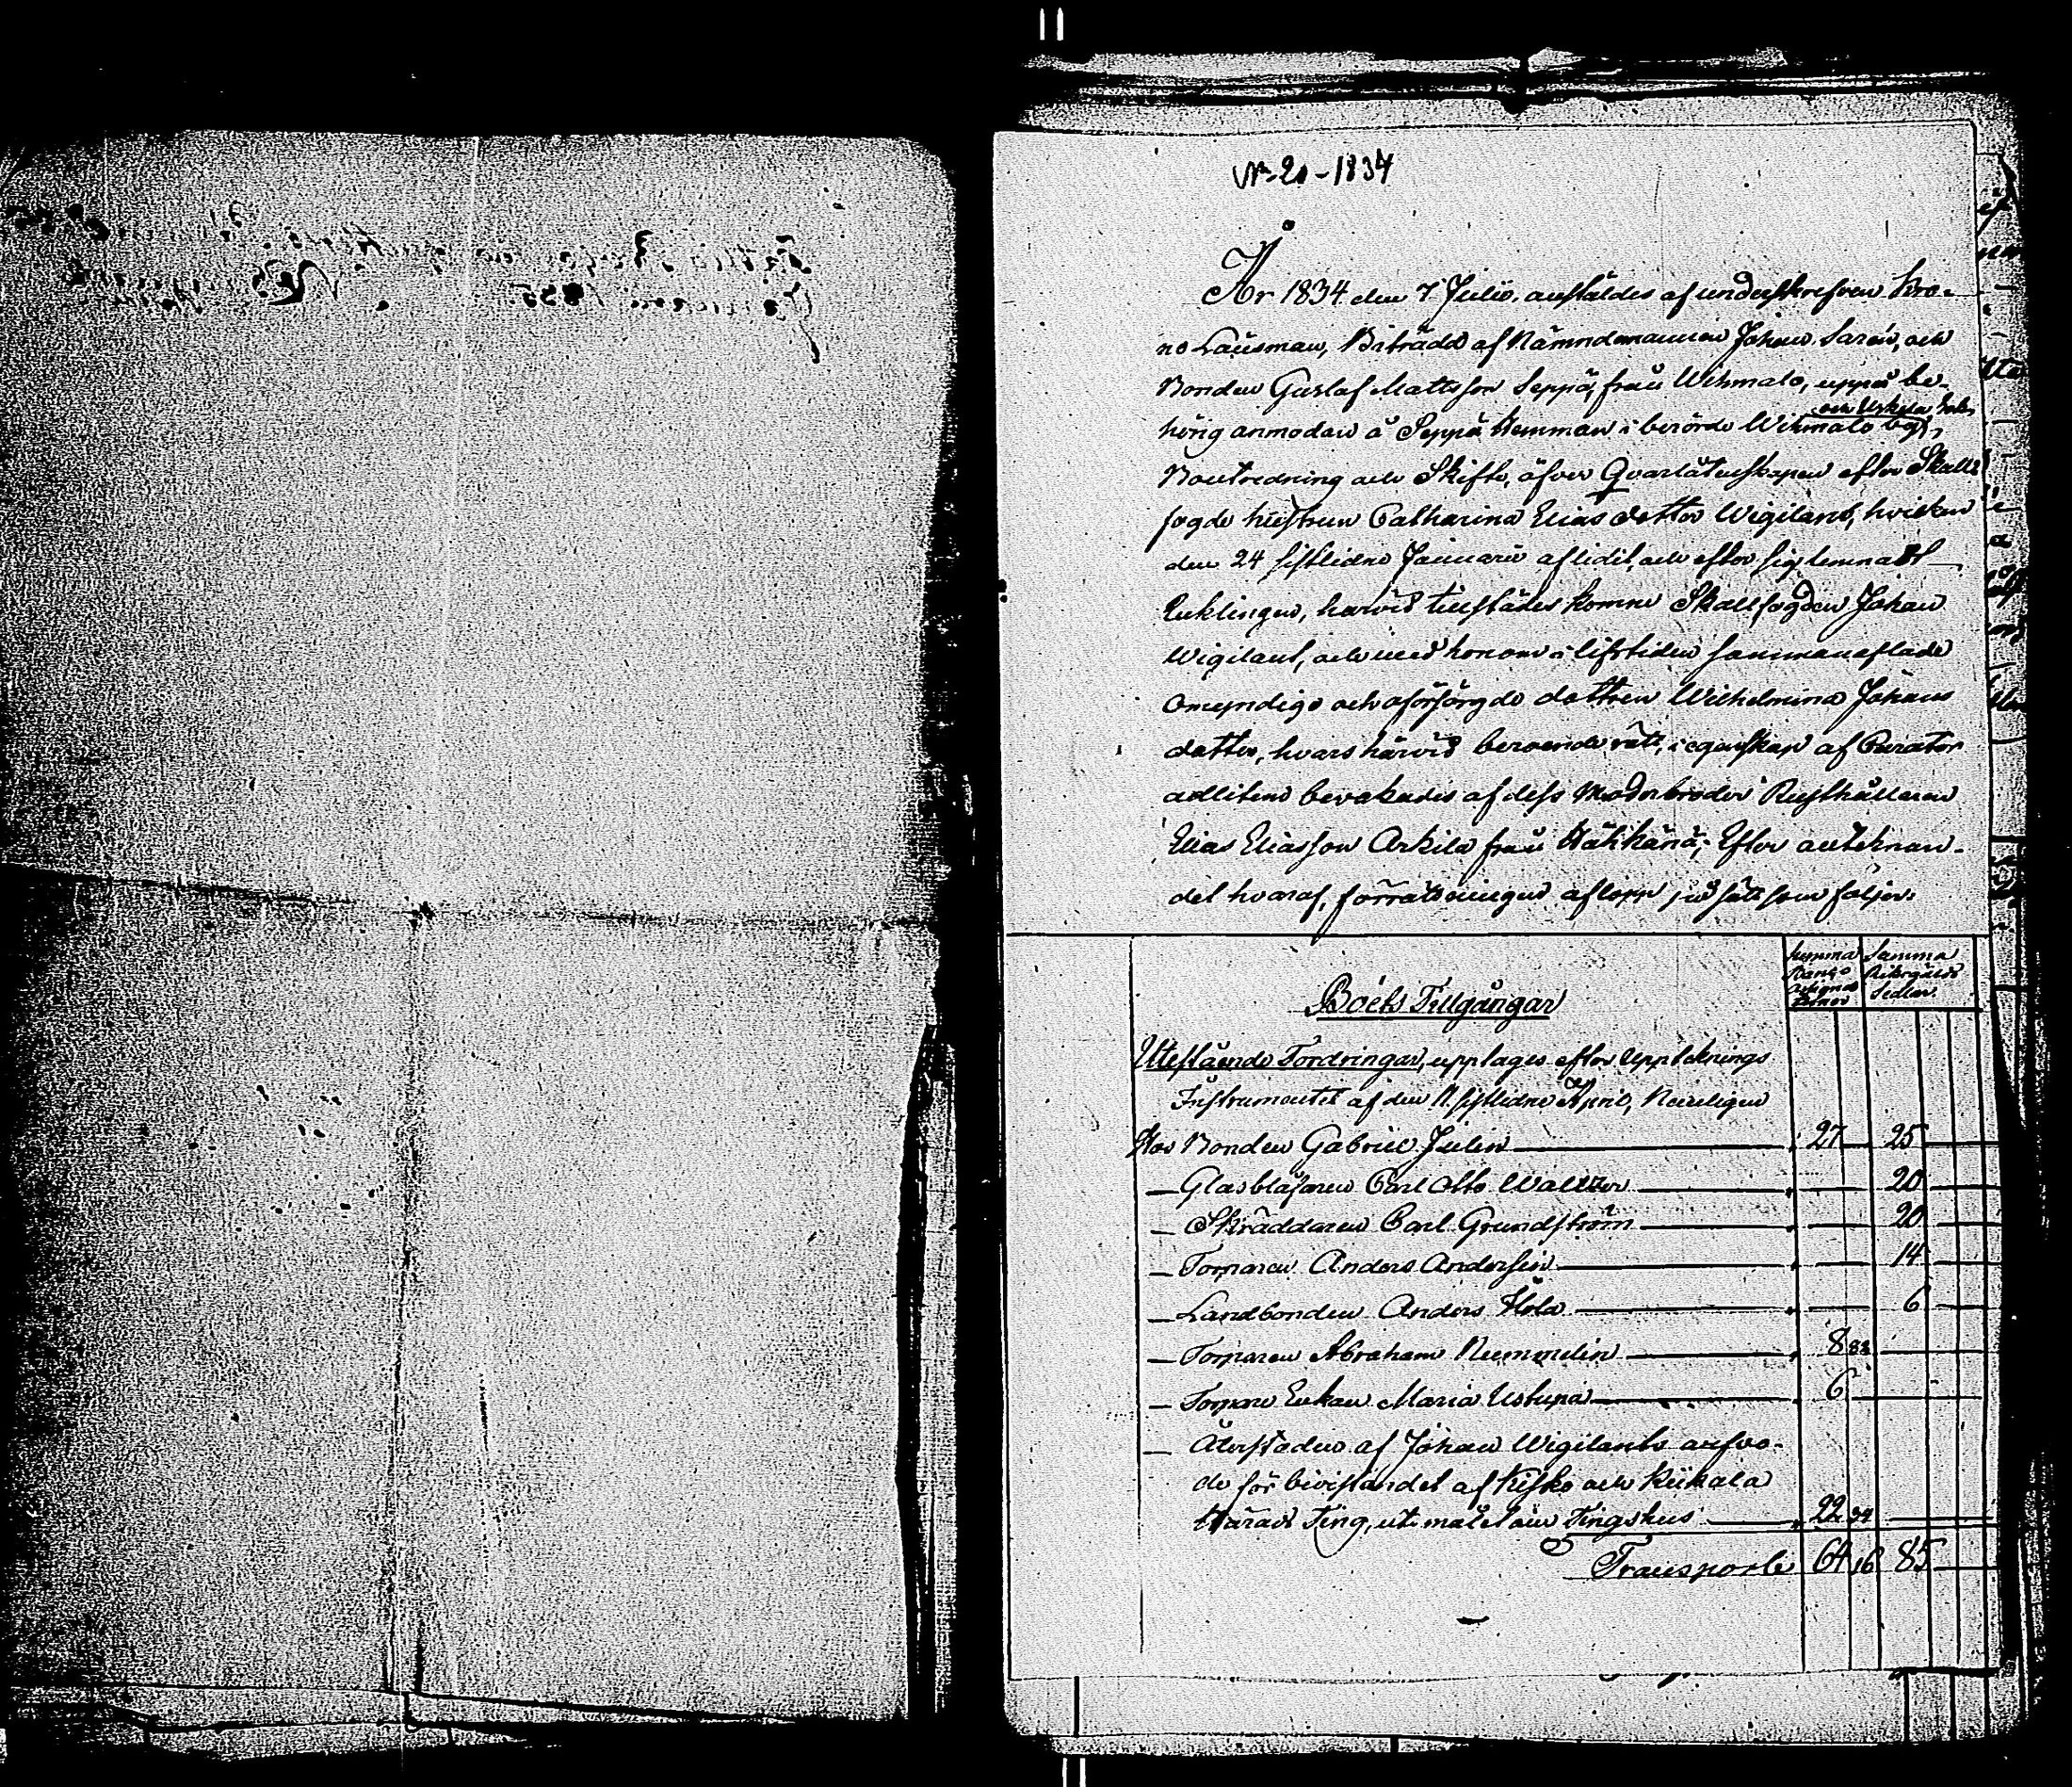 N:o 20 - 1834
År 1834 den 7 Julii, anstäldes af underskrefven Kro-
no Länsman, Biträdd af Nämndemannen Johan Sarén, och
Bonden Gustaf Mattsson Seppä, från Wihmalo, uppå be-
hörig anmodan å Seppä Hemman i berörde Wihmalo by,
och Uskela
Boutredning och Skifte, öfver Qvarlåtenskapen efter Skall-
fogde hustrun Catharina Elias dotter Wigilant, hvilken
den 24 sistledne Januarii aflidit, och efter sig lemnat
Enklingen, härvid tillstädes komne Skallfogden Johan
Wigilant, och med honom i lifstiden sammanaflade
omyndige och oförsörgde dottren Wilhelmina Johans
dotter, hvars härvid beroende rätt, i egenskap af Curator
adlitem bevakades af dess Moderbroder Rusthållaren
Elias Eliasson Arkila från Hähkänä; Efter anteknan-
det hvaraf, förrättningen aflopp på sätt som följer:
Summa Banco Assignationer
Summa Riksgälds Sedlar
Boets Tillgångar
Utestående Fordringar, upptages efter Upptecknings
Instrumentet af den sistledne April, Nemligen
Hos Bonden Gabriel Julin 27 25
— Glasblåsaren Carl Otto Waltter 20
— Skräddaren Carl Grundström 20
— Torparen Anders Andersin 14
— Landbonden Anders 6
— Torparen Abraham Nummelin 8 83
— Torpare Enkan Maria Ustupä 6
— Återstaden af Johan Wigilants arfvo-
de för bevistandet af Kisko och Kiikala
Härads Ting, uti målet om Tingshus 22
Transporte 64 16 85